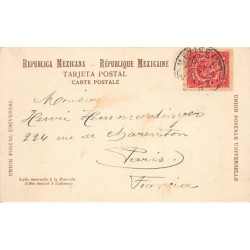 REPUBLICA MEXICANA — RÉPUBLIQUE MEXICAINE
TARJETA POSTAL
CARTE POSTALE
UNION POSTAL UNIVERSAL
UNION POSTALE UNIVERSELLE
Monsieur
Henri
224 rue de Charenton
Paris
Francia
Lado reservado á la dirección
(Côté réservé à l'adresse)